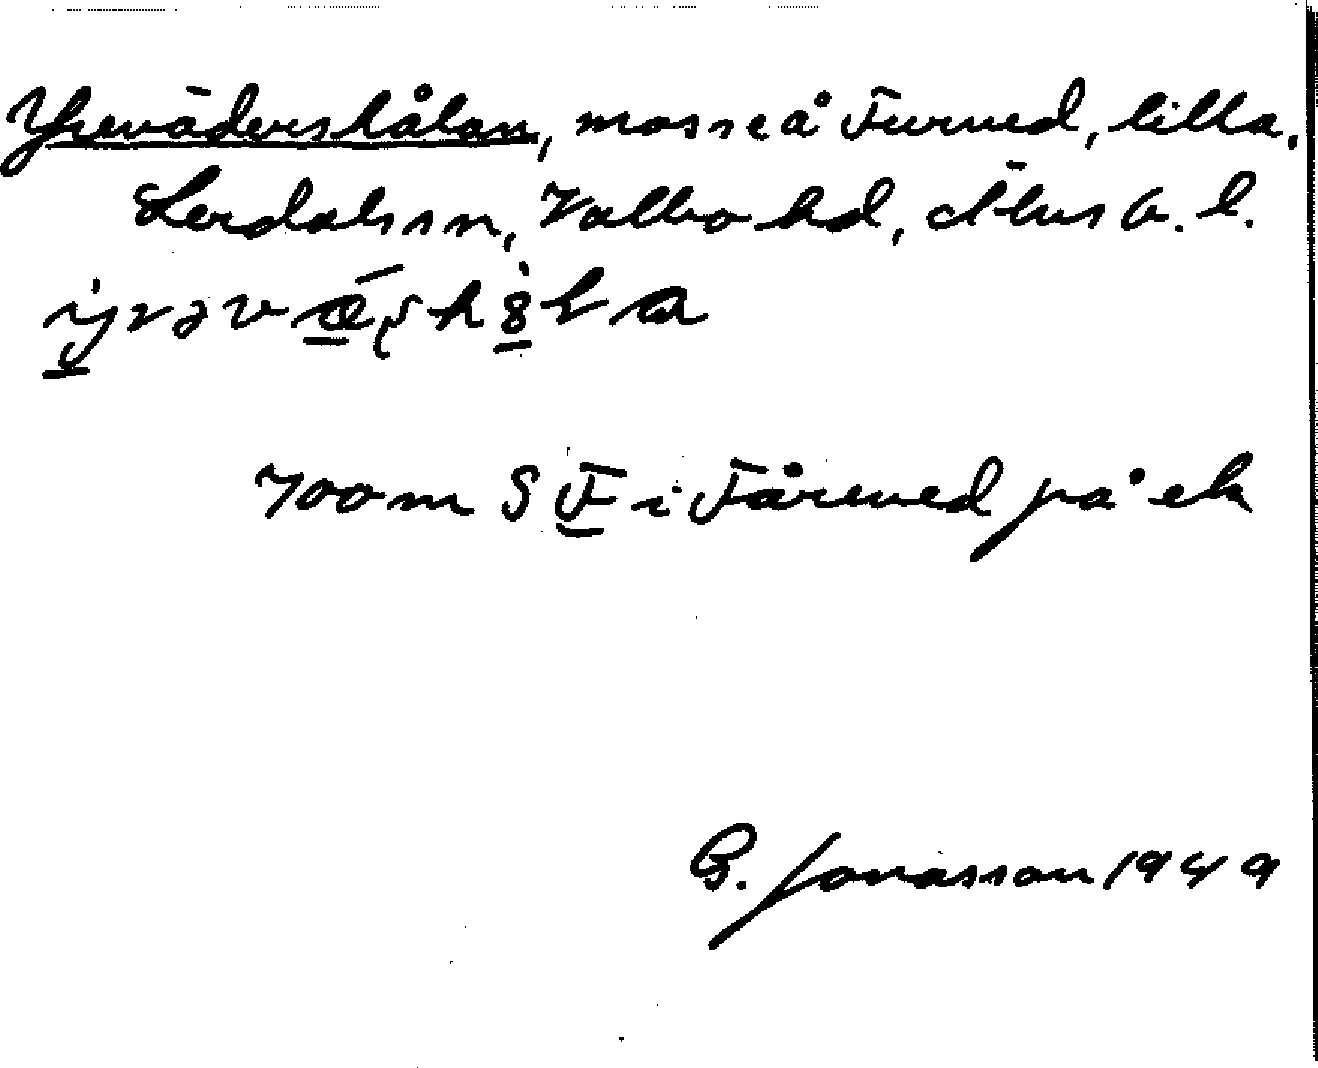 Yrevädershålan, mosse å Furved, lilla,
Lerdals sn, Valbo hd, Älvsb. l.
700 m S F i Fåreved på ek
G. Jonasson 1949